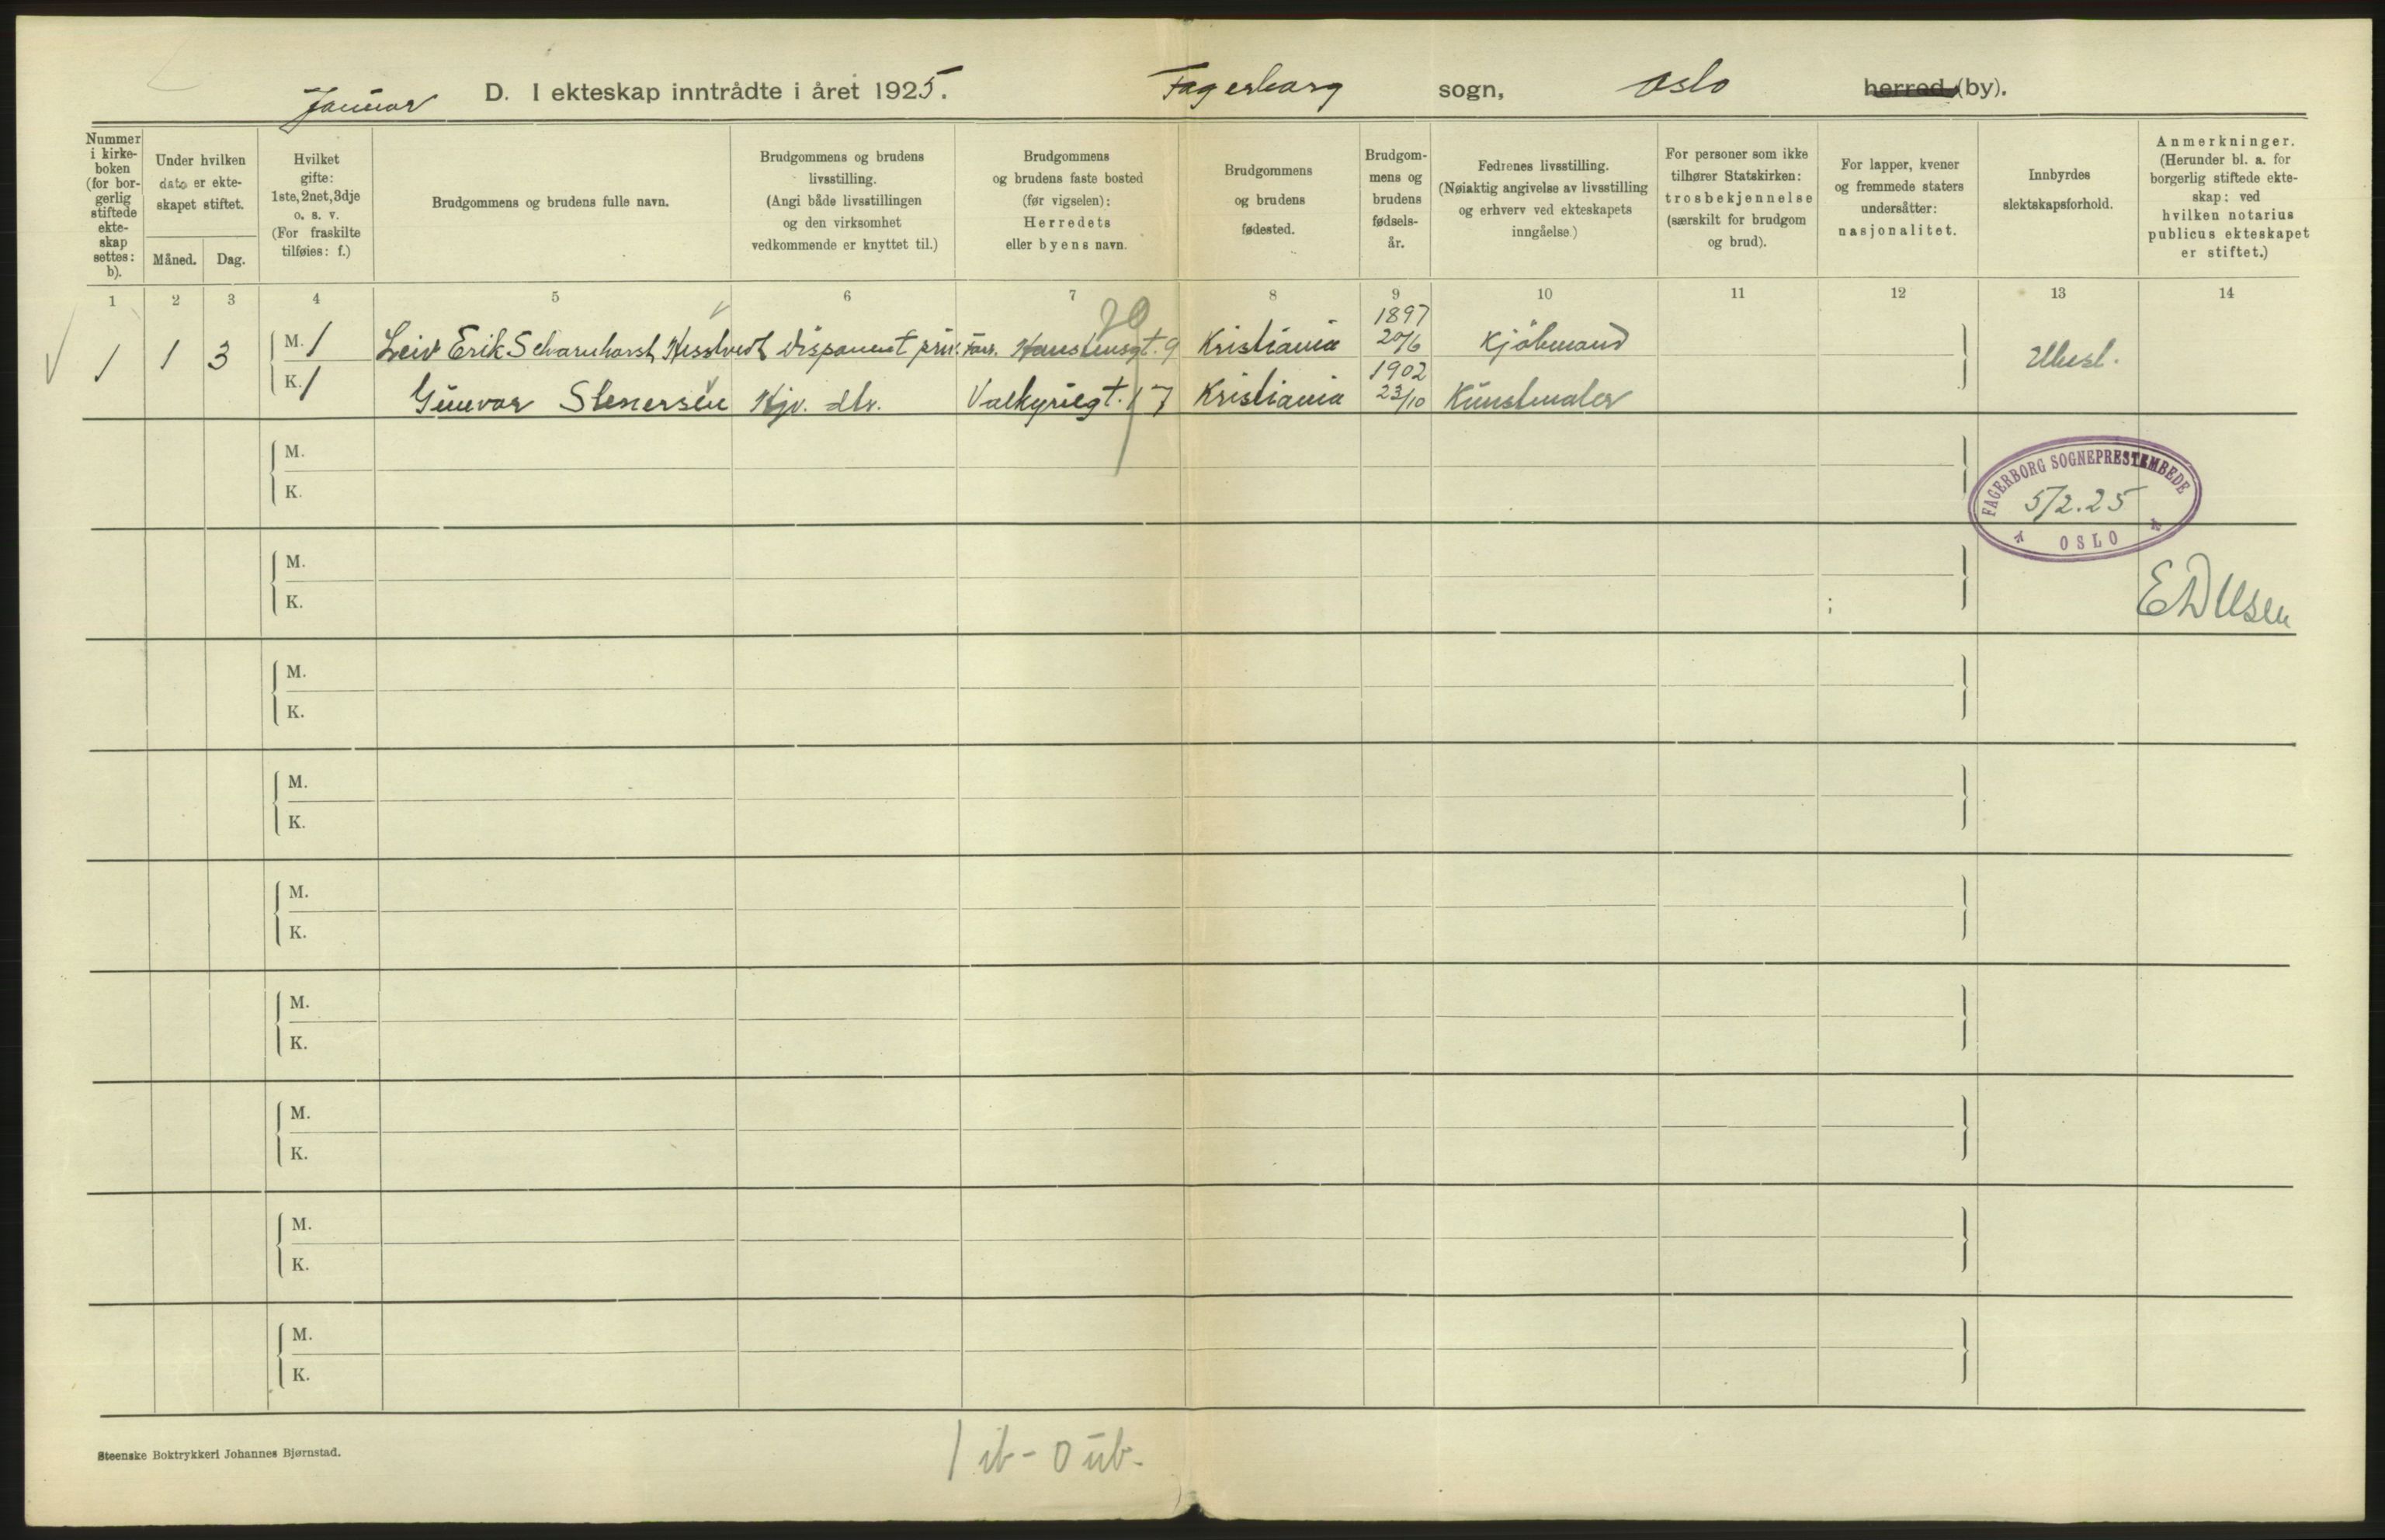 Januar D. I ekteskap inntrådte i året 1925. Fagerborg sogn, Oslo herred (by).
Nummer i kirkeboken (for borgerlig stiftede ekteskap settes: b).
Under hvilken dato er ekteskapet stiftet.
Måned. Dag.
Hvilket gifte: 1ste, 2net, 3dje o. s. v. (For fraskilte tilføies: f.)
Brudgommens og brudens fulle navn.
Brudgommens og brudens livsstilling. (Angi både livsstillingen og den virksomhet vedkommende er knyttet til.)
Brudgommens og brudens faste bosted (før vigselen): Herredets eller byens navn.
Brudgommens og brudens fødested.
Brudgommens og brudens fødselsår.
Fedrenes livsstilling. (Nøiaktig angivelse av livsstilling og erhverv ved ekteskapets inngåelse.)
For personer som ikke tilhører Statskirken: trosbekjennelse (særskilt for brudgom og brud).
For lapper, kvener og fremmede staters undersåtter: nasjonalitet.
Innbyrdes slektskapsforhold.
Anmerkninger. (Herunder bl. a. for borgerlig stiftede ekteskap: ved hvilken notarius publicus ekteskapet er stiftet.)
1 2 3 4 5 6 7 8 9 10 11 12 13 14
20
1 1 3 M. 1 Leiv Erik Scharnhorst Disponent 9 Kristiania 1897 20/6 Kjöbmand Ubesl.
K. 1 Gunvor Stenersen Hjv. dtr. Valkyriegt. 17 Kristiania 1902 23/10 Kunstmaler
M.
K.
FAGERBORG SOGNEPRESTEMBEDE
5/2.25
OSLO
M.
K.
M.
K.
M.
K.
M.
K.
M.
K.
M.
K.
M.
K.
M.
K.
Steenske Boktrykkeri Johannes Bjørnstad.
1 ib - 0 ub.